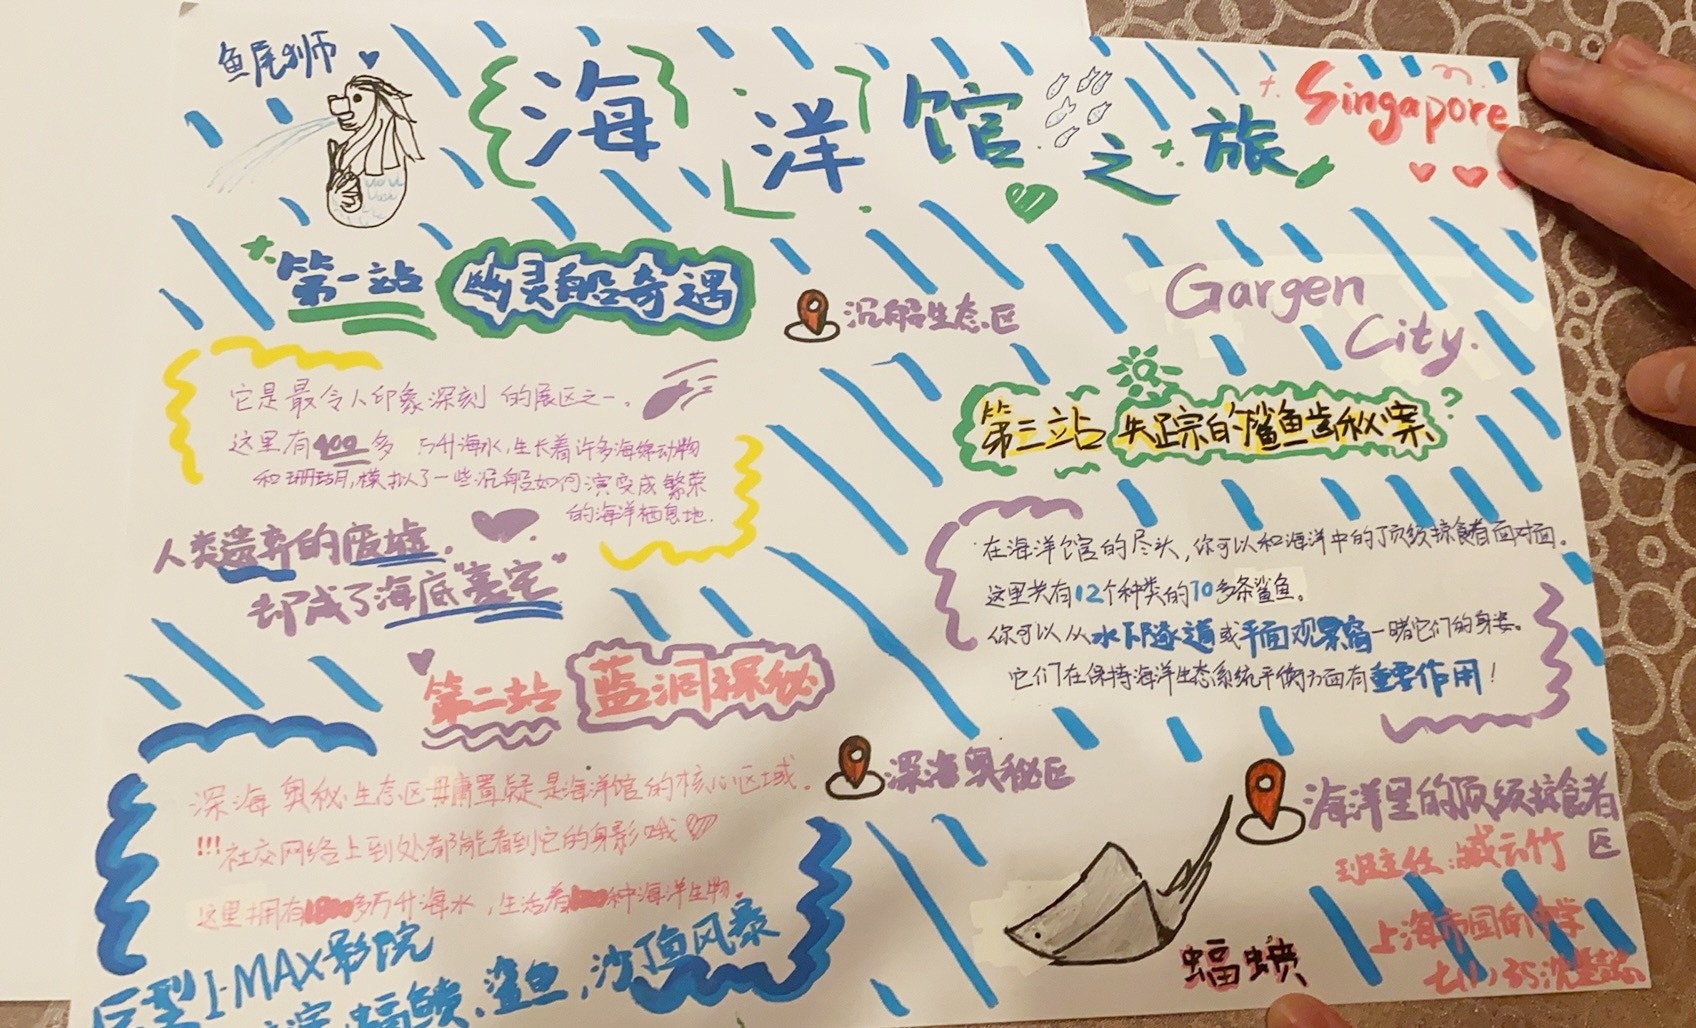 鱼尾狮
海洋馆之旅
Singapore
第一站 幽灵船奇遇
沉船生态区
Gargen
City.
它是最令人印象深刻的展区之一。
这里有400多万升海水,生长着许多海绵动物
和珊瑚,模拟了一些沉船如何演变成繁荣
的海洋栖息地.
人类遗弃的废墟.
却成了海底"豪宅"
第二站 蓝洞探秘
深海奥秘区
深海奥秘生态区毋庸置疑是海洋馆的核心区域.
!!!社交网络上到处都能看到它的身影哦
这里拥有1800多万升海水,生活着种海洋生物.
巨型I-MAX影院
蝠鲼、鲨鱼,沙丁鱼风暴
第三站 失踪的鲨鱼齿秘案?
在海洋馆的尽头,你可以和海洋中的顶级掠食者面对面.
这里共有12个种类的70多条鲨鱼。
你可以从水下隧道或平面观景窗一睹它们的身姿。
它们在保持海洋生态系统平衡方面有重要作用!
海洋里的顶级掠食者
区
班主任:臧云竹
蝠鲼
上海市园南中学
七(1)35沈